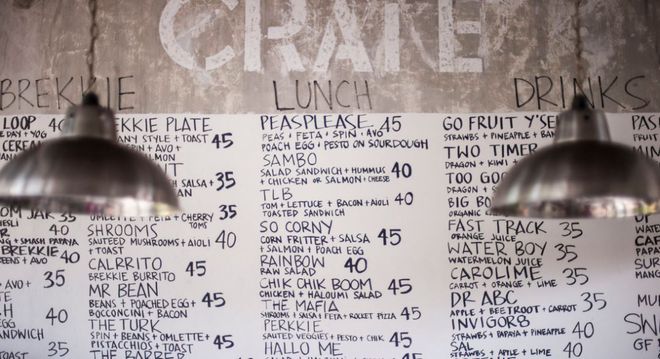 CRATE
BREKKIE
LOOP 40
E DAY + YOG
CEREAL
JAR 35
40
+ SMASH PAPAYA
BREKKIE
+ AVO 35
40
NDWICH
35
EKKIE PLATE 45
NNY STYLE + TOAST
+ AVO +
35
SALSA +
OMLETTE + FETA + CHERRY TOMS 35
SHROOMS 40
SAUTEED MUSHROOMS + AIOLI
+ TOAST
CALRRITO 45
BREKKIE BURRITO
MR BEAN 45
BEANS + POACHED EGG +
BOCCONCINI + BACON
THE TURK 45
SPIN + BEANS + OMLETTE +
PISTACCHIOS + TOAST
THE BARBER
LUNCH
PEASPLEASE 45
PEAS + FETA + SPIN + AVO
POACH EGG + PESTO ON SOURDOUGH
SAMBO 40
SALAD SANDWICH + HUMMUS
+ CHICKEN OR SALMON + CHEESE
TLB 40
TOM + LETTUCE + BACON + AIOLI
TOASTED SANDWICH
SO CORNY 45
CORN FRITTER + SALSA
+ SALMON + POACH EGG
RAINBOW 40
RAW SALAD
CHIK CHIK BOOM 45
CHICKEN + HALOUMI SALAD
THE MAFIA 45
SHROOMS + SALSA + FETA + ROCKET PIZZA
PERKKIE 45
SAUTED VEGGIES + PESTO + CHIK
HALLO ME
DRINKS
GO FRUIT Y'SE
STRAWBS + PINEAPPLE + BAN
TWO TIMER
DRAGON + KIWI
TOO GOO
DRAGON + S
BIG BO
ORGANIC
FAST TRACK 35
ORANGE JUICE
WATER BOY 35
WATERMELON JUICE
CAROLIME 35
CARROT + ORANGE + LIME
DR ABC 35
APPLE + BEETROOT + CARROT
INVIGORB 40
STRAWBS + PAPAYA + PINEAPPLE
SAL 40
STRAWBS + APPLE + LIME